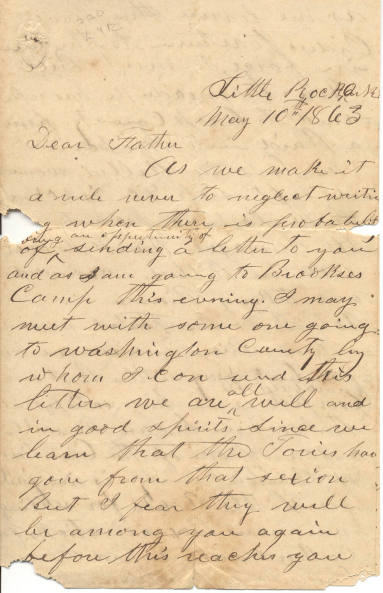 Little Rock Ark
May 10th 1863
Dear Father
As we make it
a rule never to neglect writi
ng when there is probabilit
having an oppertunity of
of sending a letter to you
and as I am going to Brookses
Camp this evening. I may
meet with some one going
to Washington County by
whom I can send this
letter we are all well and
in good spirits since we
learn that the Tories hav
gone from that sexion
But I fear they will
be among you again
before this reaches you